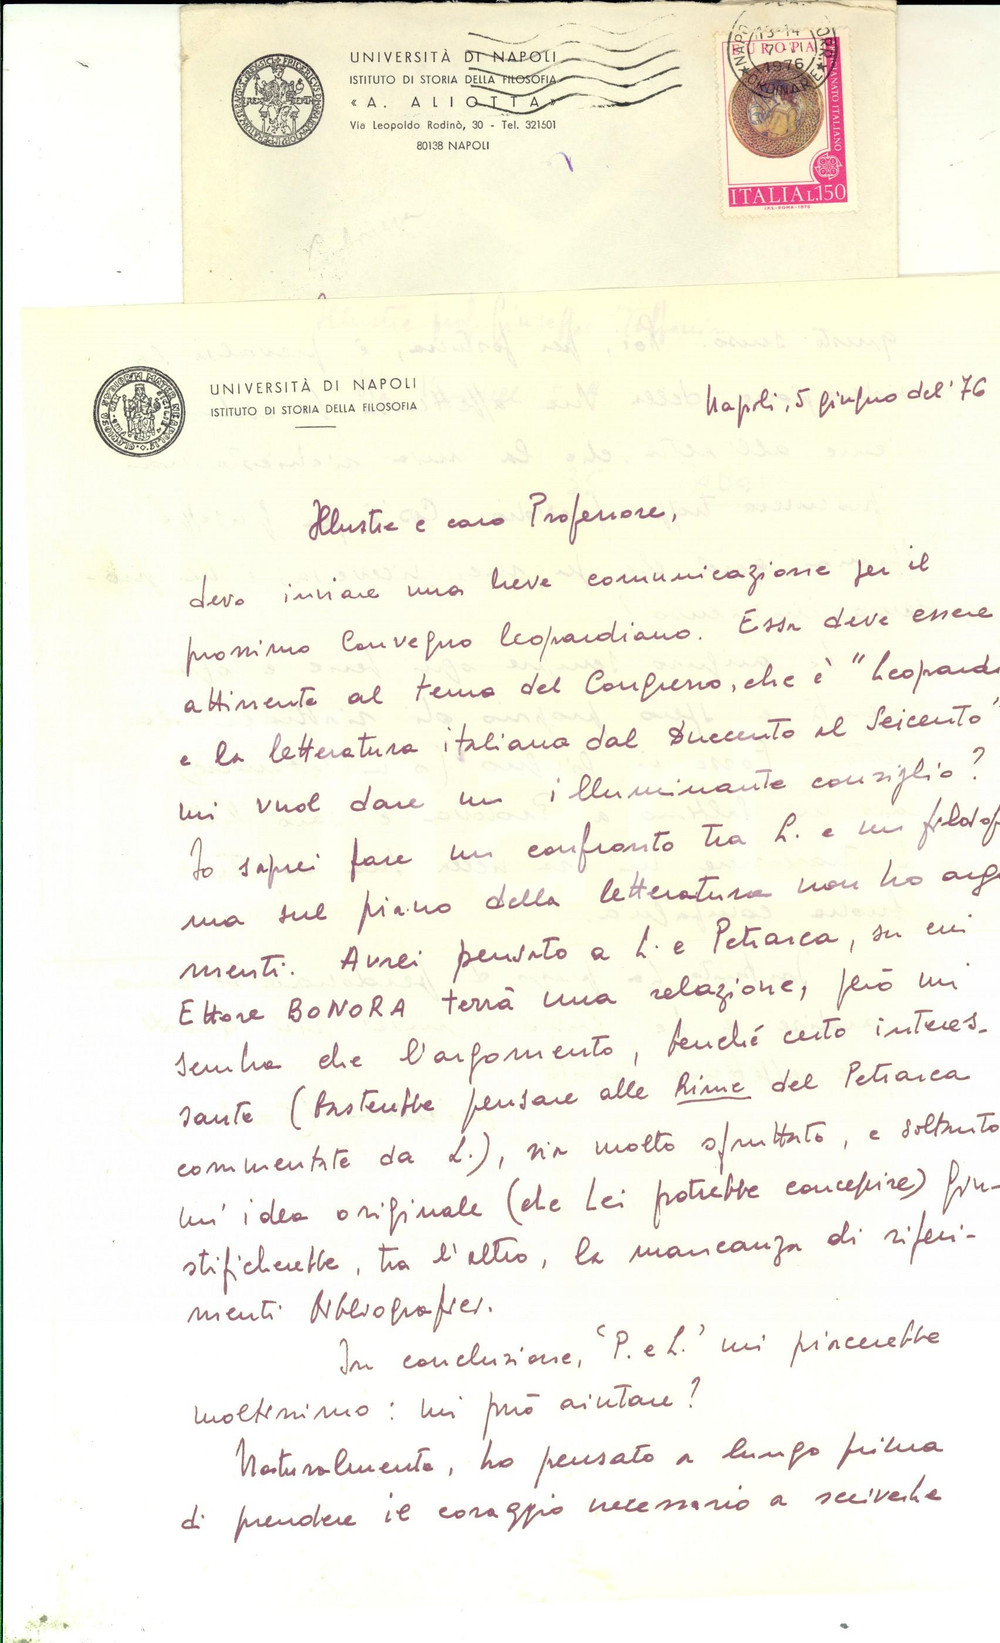 UNIVERSITÀ DI NAPOLI
ISTITUTO DI STORIA DELLA FILOSOFIA
« A. ALIOTTA »
Via Leopoldo Rodinò, 30 - Tel. 321501
80138 NAPOLI
EUROPA
ARTIGIANATO ITALIANO
13-14
7-
1976
ORDINARIE
ITALIA L.150
UNIVERSITÀ DI NAPOLI
ISTITUTO DI STORIA DELLA FILOSOFIA
Napoli, 5 giugno del '76
Illustre e caro Professore,
devo inviare una breve comunicazione per il
prossimo Convegno leopardiano. Essa deve essere
attinente al tema del Congresso, che è "Leopardi
e la letteratura italiana dal Duecento al Seicento"
mi vuol dare un illuminante consiglio?
Io saprei fare un confronto tra L. e un filosof
ma sul piano della letteratura non ho argo
menti. Avrei pensato a L. e Petrarca, su cui
Ettore BONORA terrà una relazione, però mi
sembra che l'argomento, benché certo interes-
sante (basterebbe pensare alle Rime del Petrarca
commentate da L.), sia molto sfruttato, e soltanto
un'idea originale (che Lei potrebbe concepire) giu-
stificherebbe, tra l'altro, la mancanza di riferi-
menti bibliografici.
In conclusione, 'P. e L.' mi piacerebbe
moltissimo: mi può aiutare?
Naturalmente, ho pensato a lungo prima
di prendere il coraggio necessario a scriverLe